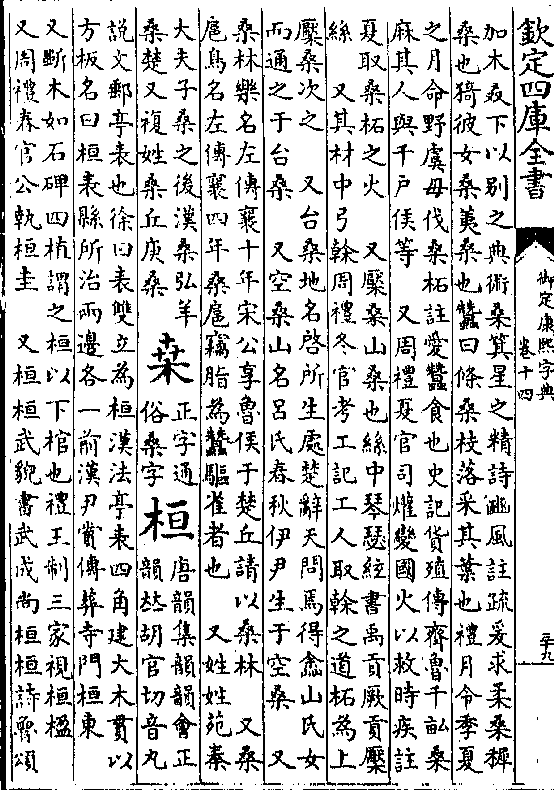 欽定四庫全書
御定康熙字典
卷十四
三十九
加木叒下以別之典術桑箕星之精詩豳風註疏爰求柔桑穉
桑也猗彼女桑荑桑也蠶曰條桑枝落采其葉也禮月令季夏
之月命野虞毋伐桑柘註愛蠶食也史記貨殖傳齊魯千畝桑
麻其人與千戶侯等 又周禮夏官司爟變國火以救時疾註
夏取桑柘之火 又檿桑山桑也絲中琴瑟絃書禹貢厥貢檿
絲 又其材中弓榦周禮冬官考工記工人取榦之道柘為上
檿桑次之 又台桑地名啓所生處楚辭天問焉得嵞山氏女
而通之于台桑 又空桑山名呂氏春秋伊尹生于空桑 又
桑林樂名左傳襄十年宋公享魯侯于楚丘請以桑林 又桑
扈鳥名左傳襄四年桑扈竊脂為蠶驅雀者也 又姓姓苑秦
大夫子桑之後漢桑弘羊
桑楚又複姓桑丘庚桑
桒
正字通
俗桑字
桓
唐韻集韻韻會正
韻𠀤胡官切音丸
說文郵亭表也徐曰表雙立為桓漢法亭表四角建大木貫以
方板名曰桓表縣所治兩邊各一前漢尹賞傳葬寺門桓東
又斲木如石碑四植謂之桓以下棺也禮王制三家視桓楹
又周禮春官公執桓圭 又桓桓武貌書武成尚桓桓詩魯頌